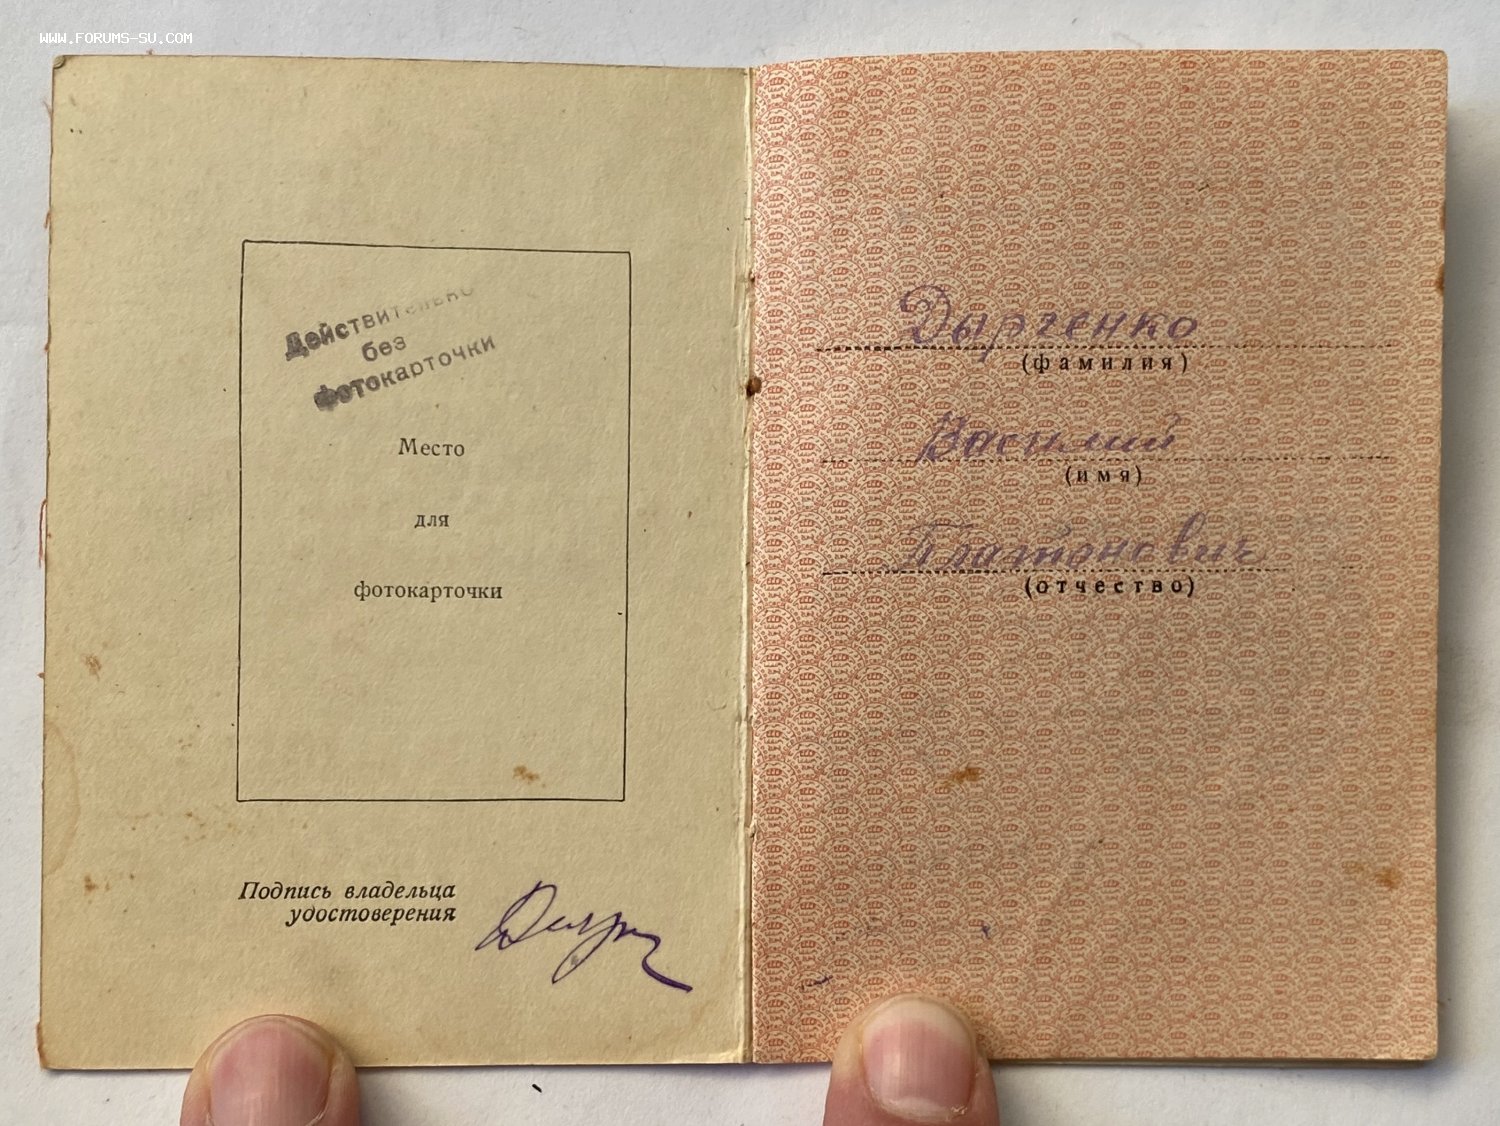 WWW.FORUMS-SU.COM
Действительно
без
фотокарточки
Место
для
фотокарточки
Подпись владельца
удостоверения
Дырченко
(фамилия)
Василий
(имя)
Платонович
(отчество)